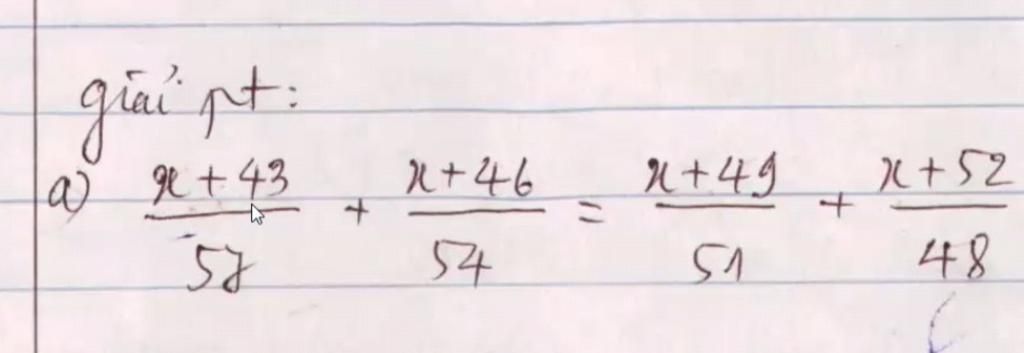 giải pt:
a) x+43/57 + x+46/54 = x+49/51 + x+52/48